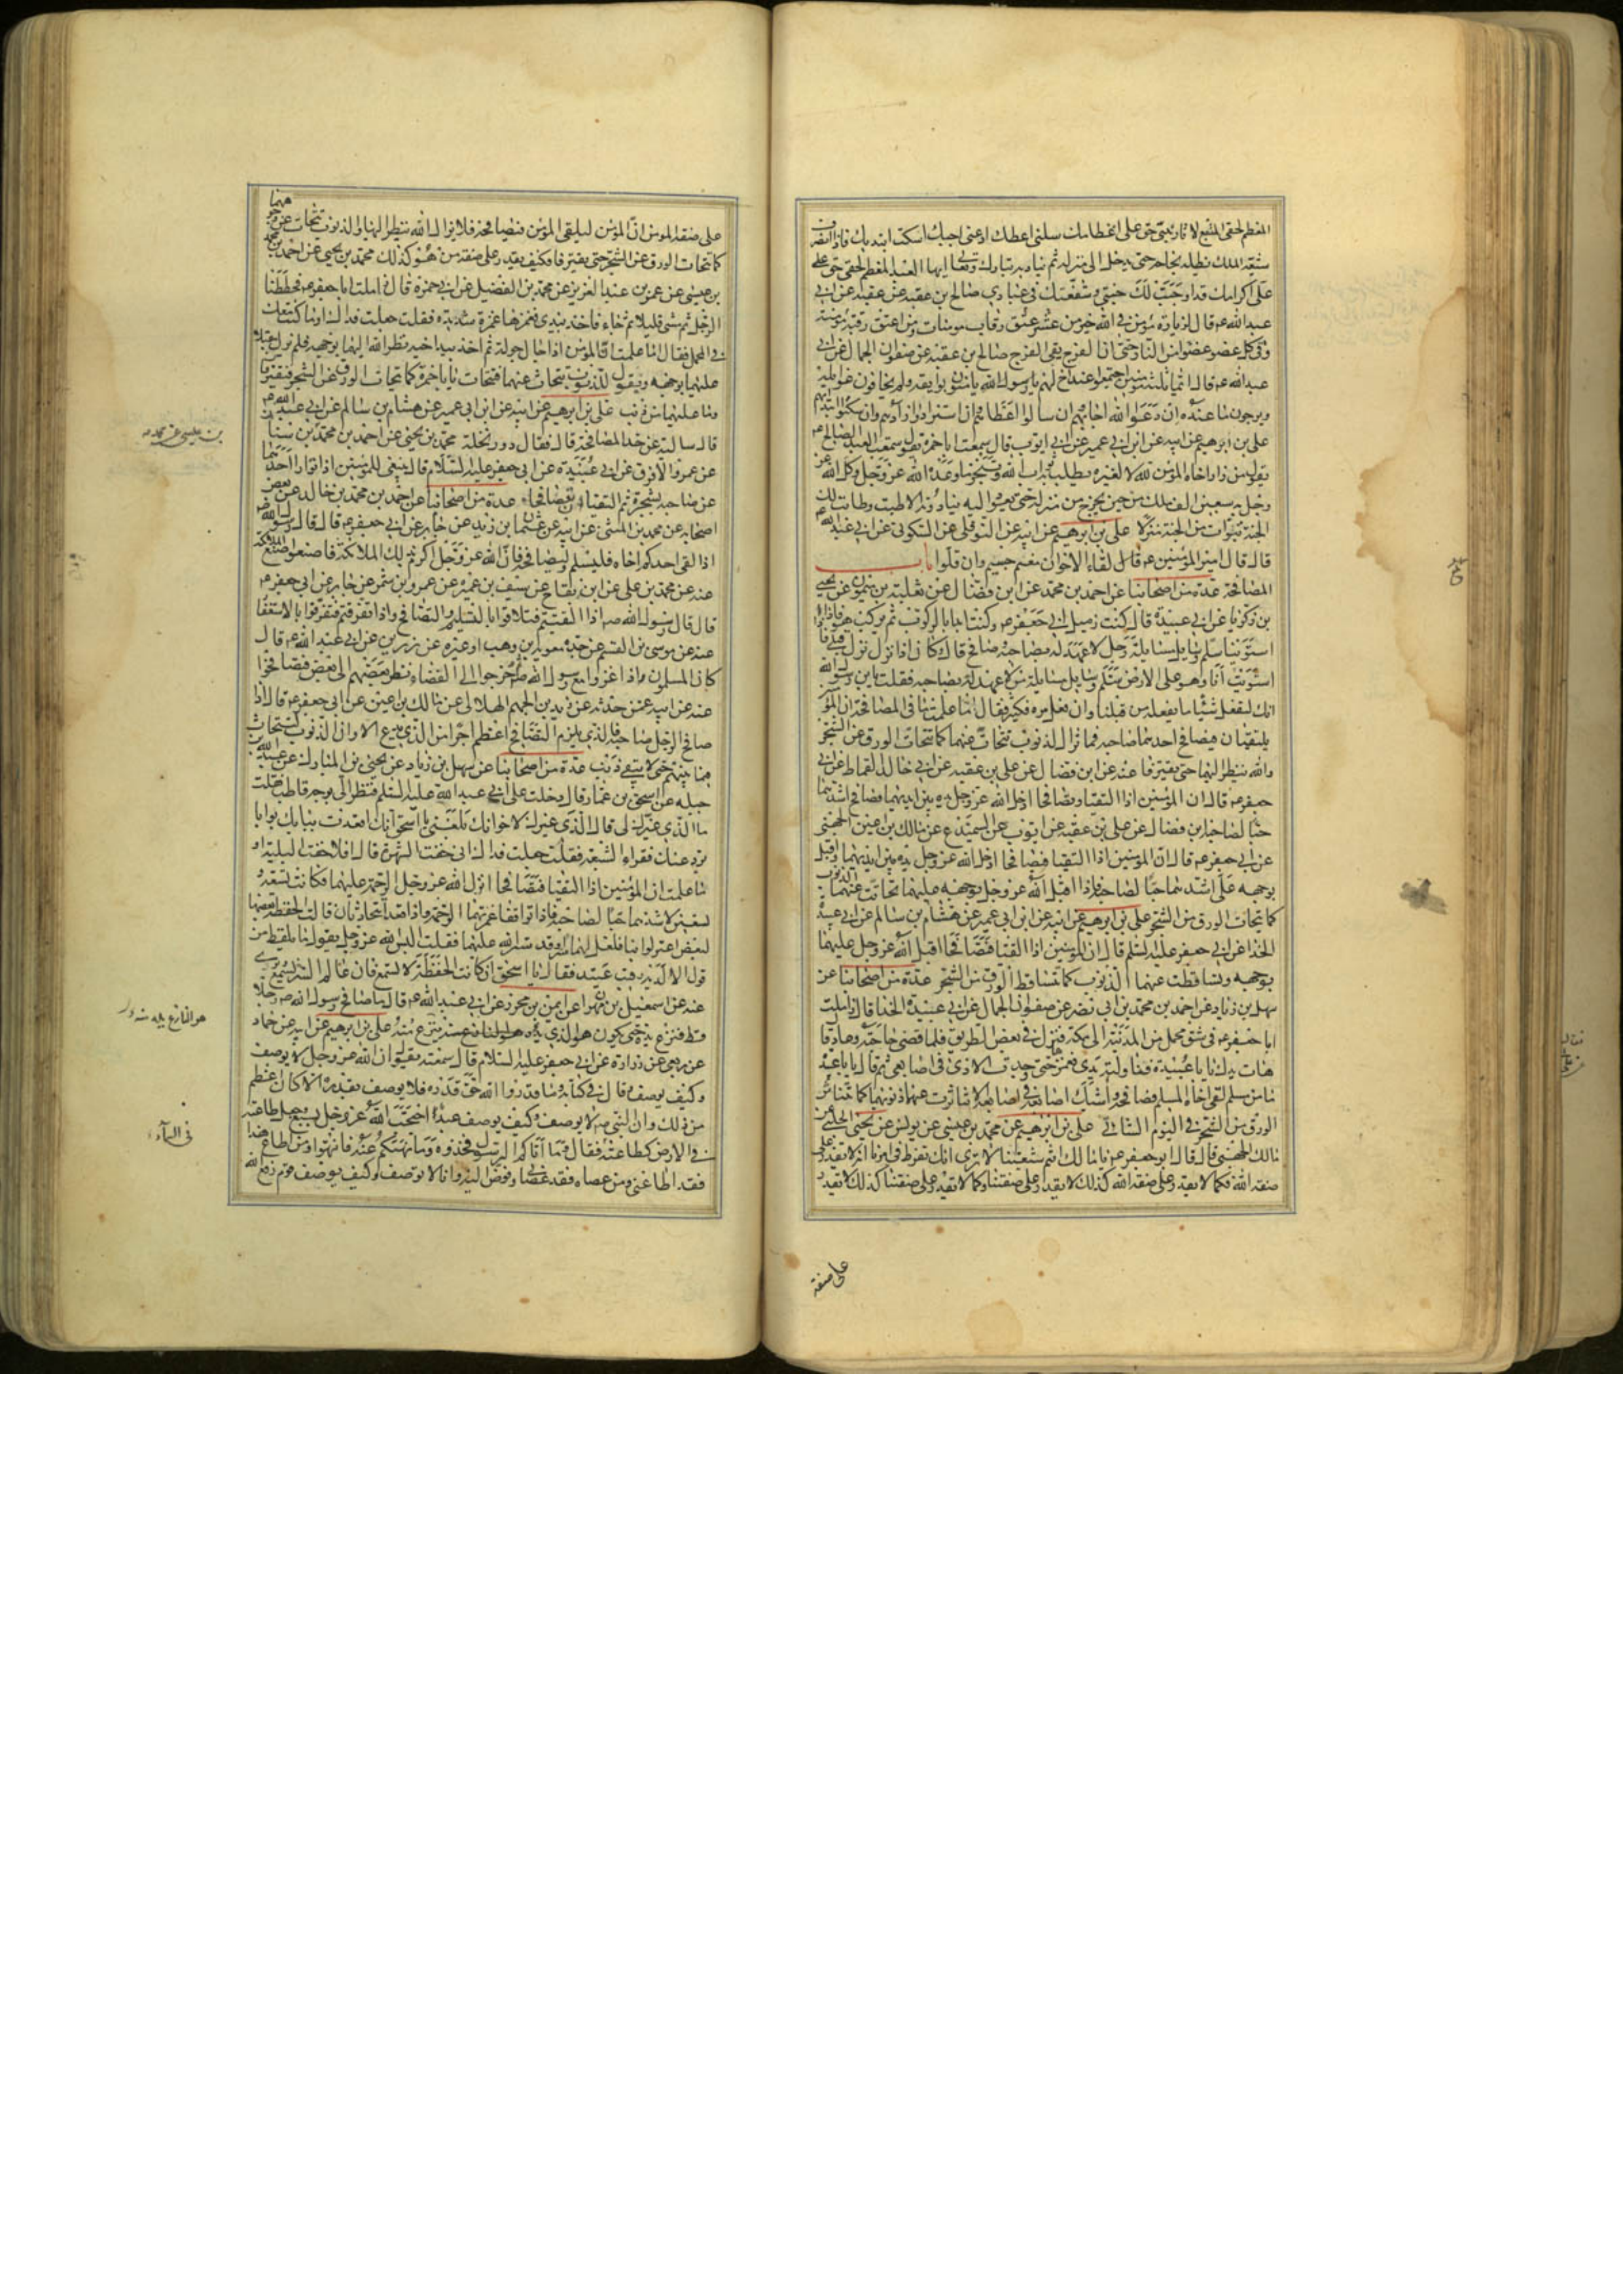 المعظم لحقي المتبع لآثار نبيي حق علي اعظامك سلني اعطك ادعني اجبك اسكت ابتدئك فاذا انصرف
شيعه الملك يظله بجناحه حتى يدخل الى منزله ثم يناديه تبارك وتعالى ايها العبد المعظم لحقي حق علي
علي اكرامك قد اوجبت لك جنتي وشفعتك في عبادي صالح بن عقبة عن عقبة عن ابي
عبد الله ع قال لزيارة مؤمن في الله خير من عشر عتق رقاب مومنات ومن اعتق رقبة مؤمنة
وقى كل عضو عضوا من النار حتى ان الفرج يقي الفرج صالح بن عقبة عن صفوان الجمال عن ابي
عبد الله ع قال ايما ثلثة مومنين اجتمعوا عند اخ لهم يامنون بوايقه ولا يخافون غوايله
ويرجون ما عنده ان دعوا الله اجابهم وان سالوا اعطاهم وان استزادوا زادهم وان سكتوا ابتداهم
علي بن ابرهيم عن ابيه عن ابن ابي عمير عن ابي ايوب قال سمعت ابا حمزة يقول سمعت العبد الصالح ع
يقول من زار اخاه المؤمن لله لا لغيره يطلب به ثواب الله وتنجز ما وعده الله عز وجل وكل الله
عز وجل به سبعين الف ملك من حين يخرج من منزله حتى يعود اليه ينادونه الا طبت وطابت لك
الجنة تبوات من الجنة منزلا علي بن ابرهيم عن ابيه عن النوفلي عن السكوني عن ابي عبد الله ع
قال قال امير المؤمنين ع لقاء الاخوان مغنم جسيم وان قلوا باب
المصافحة عدة من اصحابنا عن احمد بن محمد عن ابن فضال عن ثعلبة بن ميمون عن يحيى
بن زكريا عن ابي عبيدة قال كنت زميل ابي جعفر ع وكنت ابدا بالركوب ثم يركب هو فاذا
استوينا سلم وسايل مسايلة رجل لا عهد له بصاحبه وصافح قال وكان اذا نزل نزل قبلي فاذا
استويت انا وهو على الارض سلم وسايل مسايلة من لا عهد له بصاحبه فقلت يابن رسول الله
انك لتفعل شيئا ما يفعله من قبلنا وان فعل مرة فكثير فقال اما علمت ما في المصافحة ان المؤمنين
يلتقيان فيصافح احدهما صاحبه فما تزال الذنوب تتحات عنهما كما تتحات الورق عن الشجر
والله ينظر اليهما حتى يفترقا عنه عن ابن فضال عن علي بن عقبة عن ابي خالد القماط عن ابي
جعفر ع قال ان المؤمنين اذا التقيا وتصافحا ادخل الله عز وجل يده بين ايديهما فصافح اشدهما
حبا لصاحبه ابن فضال عن علي بن عقبة عن ايوب عن السميدع عن مالك بن اعين الجهني
عن ابي جعفر ع قال ان المؤمنين اذا التقيا فتصافحا ادخل الله عز وجل يده بين ايديهما واقبل
بوجهه على اشدهما حبا لصاحبه فاذا اقبل الله عز وجل بوجهه عليهما تحاتت عنهما الذنوب
كما يتحات الورق من الشجر علي بن ابرهيم عن ابيه عن ابن ابي عمير عن هشام بن سالم عن ابي عبيدة
الحذا عن ابي جعفر عليه السلم قال ان المؤمنين اذا التقيا فتصافحا اقبل الله عز وجل عليهما
بوجهه وتساقطت عنهما الذنوب كما تتساقط الورق من الشجر عدة من اصحابنا عن
سهل بن زياد عن احمد بن محمد بن ابي نصر عن صفوان الجمال عن ابي عبيدة الحذا قال زاملت
ابا جعفر ع في شق محمل من المدينة الى مكة فنزل في بعض الطريق فلما قضى حاجته وعاد قال
هات يدك يا با عبيدة فناولته يدي فغمزها حتى وجدت الاذى في اصابعي ثم قال يا با عبيدة
ما من مسلم لقي اخاه المسلم فصافحه وشبك اصابعه في اصابعه الا تناثرت عنهما ذنوبهما كما يتناثر
الورق من الشجر في اليوم الشاتي علي بن ابرهيم عن محمد بن عيسى عن يونس عن يحيى الحلبي عن
مالك الجهني قال قال ابو جعفر ع يا مالك انتم شيعتنا الا ترى انك تفرط في امرنا انه لا يقدر على
صفة الله فكما لا يقدر على صفة الله كذلك لا يقدر على صفتنا وكما لا يقدر على صفتنا كذلك لا يقدر
على صفة
على صفة المومن ان المؤمن ليلقى المؤمن فيصافحه فلا يزال الله ينظر اليهما والذنوب تتحات عن وجوههما
كما تتحات الورق عن الشجر حتى يفترقا فكيف يقدر على صفة من هو كذلك محمد بن يحيى عن احمد بن محمد
بن عيسى عن عمر بن عبد العزيز عن محمد بن الفضيل عن ابي حمزة قال زاملت ابا جعفر ع فحططنا
الرحل ثم مشى قليلا ثم جاء فاخذ بيدي فغمزها غمزة شديدة فقلت جعلت فداك اوما كنت معك
في المحمل فقال اما علمت ان المؤمن اذا جال جولة ثم اخذ بيد اخيه نظر الله اليهما بوجهه فلم يزل مقبلا
عليهما بوجهه ويقول للذنوب تتحات عنهما فتتحات يا با حمزة كما تتحات الورق عن الشجر فيفترقان
وما عليهما من ذنب علي بن ابرهيم عن ابيه عن ابن ابي عمير عن هشام بن سالم عن ابي عبد الله ع
قال سالته عن حد المصافحة قال فقال دور نخلة محمد بن يحيى عن احمد بن محمد بن سنان
عن عمرو الافرق عن ابي عبيدة عن ابي جعفر عليه السلام قال ينبغي للمؤمنين اذا توارا احدهما
عن صاحبه بشجرة ثم التقيا ان يتصافحا عدة من اصحابنا عن احمد بن محمد بن خالد عن بعض
اصحابه عن محمد بن المثنى عن ابيه عن عثمان بن زيد عن جابر عن ابي جعفر ع قال قال رسول الله ص
اذا لقي احدكم اخاه فليسلم وليصافحه فان الله عز وجل اكرم بذلك الملائكة فاصنعوا صنع الملائكة
عنه عن محمد بن علي عن ابن بقاح عن سيف بن عميرة عن عمرو بن شمر عن جابر عن ابي جعفر ع
قال قال رسول الله ص اذا التقيتم فتلاقوا بالتسليم والتصافح واذا تفرقتم فتفرقوا بالاستغفار
عنه عن موسى بن القسم عن جده معوية بن وهب او غيره عن رزين عن ابي عبد الله ع قال
كان المسلمون اذا غزوا مع رسول الله ثم خرجوا الى الفضاء نظر بعضهم الى بعض فتصافحوا
عنه عن ابيه عمن حدثه عن زيد بن الجهم الهلالي عن مالك بن اعين عن ابي جعفر ع قال اذا
صافح الرجل صاحبه فالذي يلزم التصافح اعظم اجرا من الذي يدع الا وان الذنوب لتتحات
فيما بينهم حتى لا يبقى ذنب عدة من اصحابنا عن سهل بن زياد عن يحيى بن المبارك عن عبد الله بن
جبلة عن اسحق بن عمار قال دخلت على ابي عبد الله عليه السلم فنظر الي بوجه قاطب فقلت
ما الذي غيرك لي قال الذي غيرك لاخوانك بلغني يا اسحق انك اقعدت ببابك بوابا
يرد عنك فقراء الشيعة فقلت جعلت فداك اني خفت الشهرة قال افلا خفت البلية او
ما علمت ان المؤمنين اذا التقيا فتصافحا انزل الله عز وجل الرحمة عليهما فكانت تسعة و
تسعين لاشدهما حبا لصاحبه فاذا تواقفا غمرتهما الرحمة واذا قعدا يتحادثان قالت الحفظة بعضها
لبعض اعتزلوا بنا فلعل لهما سرا وقد ستر الله عليهما فقلت اليس الله عز وجل يقول ما يلفظ من
قول الا لديه رقيب عتيد فقال يا اسحق ان كانت الحفظة لا تسمع فان عالم السر يسمع ويرى
عنه عن اسمعيل بن مهران عن ايمن بن محرز عن ابي عبد الله ع قال ما صافح رسول الله ص رجلا
قط فنزع يده حتى يكون هو الذي ينزع يده منه علي بن ابرهيم عن ابيه عن حماد
عن ربعي عن زرارة عن ابي جعفر عليه السلام قال سمعته يقول ان الله عز وجل لا يوصف
وكيف يوصف وقال في كتابه وما قدروا الله حق قدره فلا يوصف بقدر الا كان اعظم
من ذلك وان النبي ص لا يوصف وكيف يوصف عبد احتجب الله عز وجل بسبع وجعل طاعته
في الارض كطاعته فقال وما آتاكم الرسول فخذوه وما نهيكم عنه فانتهوا ومن اطاع هذا
فقد اطاعني ومن عصاه فقد عصاني وفوض اليه وانا لا نوصف وكيف يوصف قوم رفع الله
بن عيسى عن محمد
هو النازع يده منه
في السماء